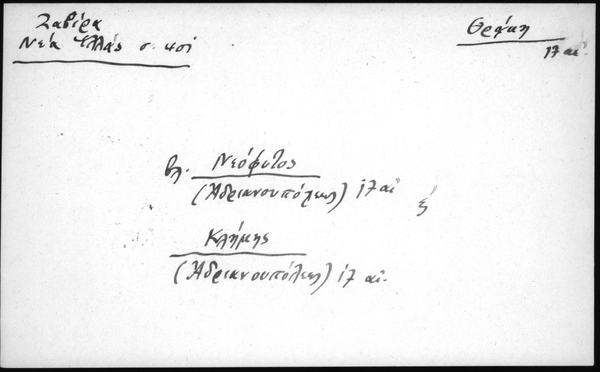 Ζαβίρα
Νέα Ἑλλάς σ. 401
Θράκη
17 αἰ
βλ. Νεόφυτος
(Ἀδριανουπόλεως) 17 αἰ
Κλήμης
(Ἀδριανουπόλεως) 17 αἰ.